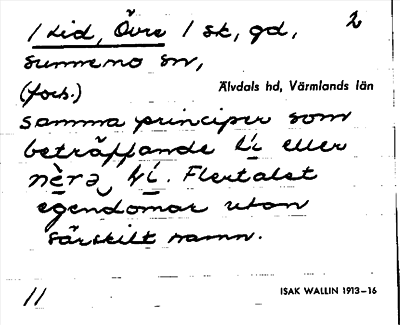 / Lid, Övre / sk, gd, 2
sunnemo sn,
(forts.) Älvdals hd, Värmlands län
samma principer som
beträffande li eller
nèrə li. Flertalet
egendomar utan
särskilt namn.
11 ISAK WALLIN 1913–16